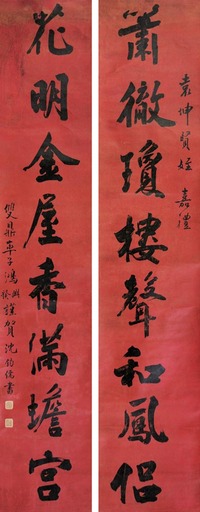 袁坤賢姪 嘉禮
簫徹瓊樓聲和鳳侶
花明金屋香滿蟾宮
雙鼎率子鴻
謹賀 沈鈞儒書